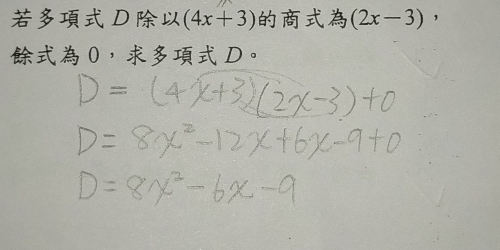 若多項式 D 除以(4x+3)的商式為(2x-3)，
餘式為 0，求多項式 D。
D = (4x+3)(2x-3)+0
D = 8x²-12x+6x-9+0
D = 8x²-6x-9